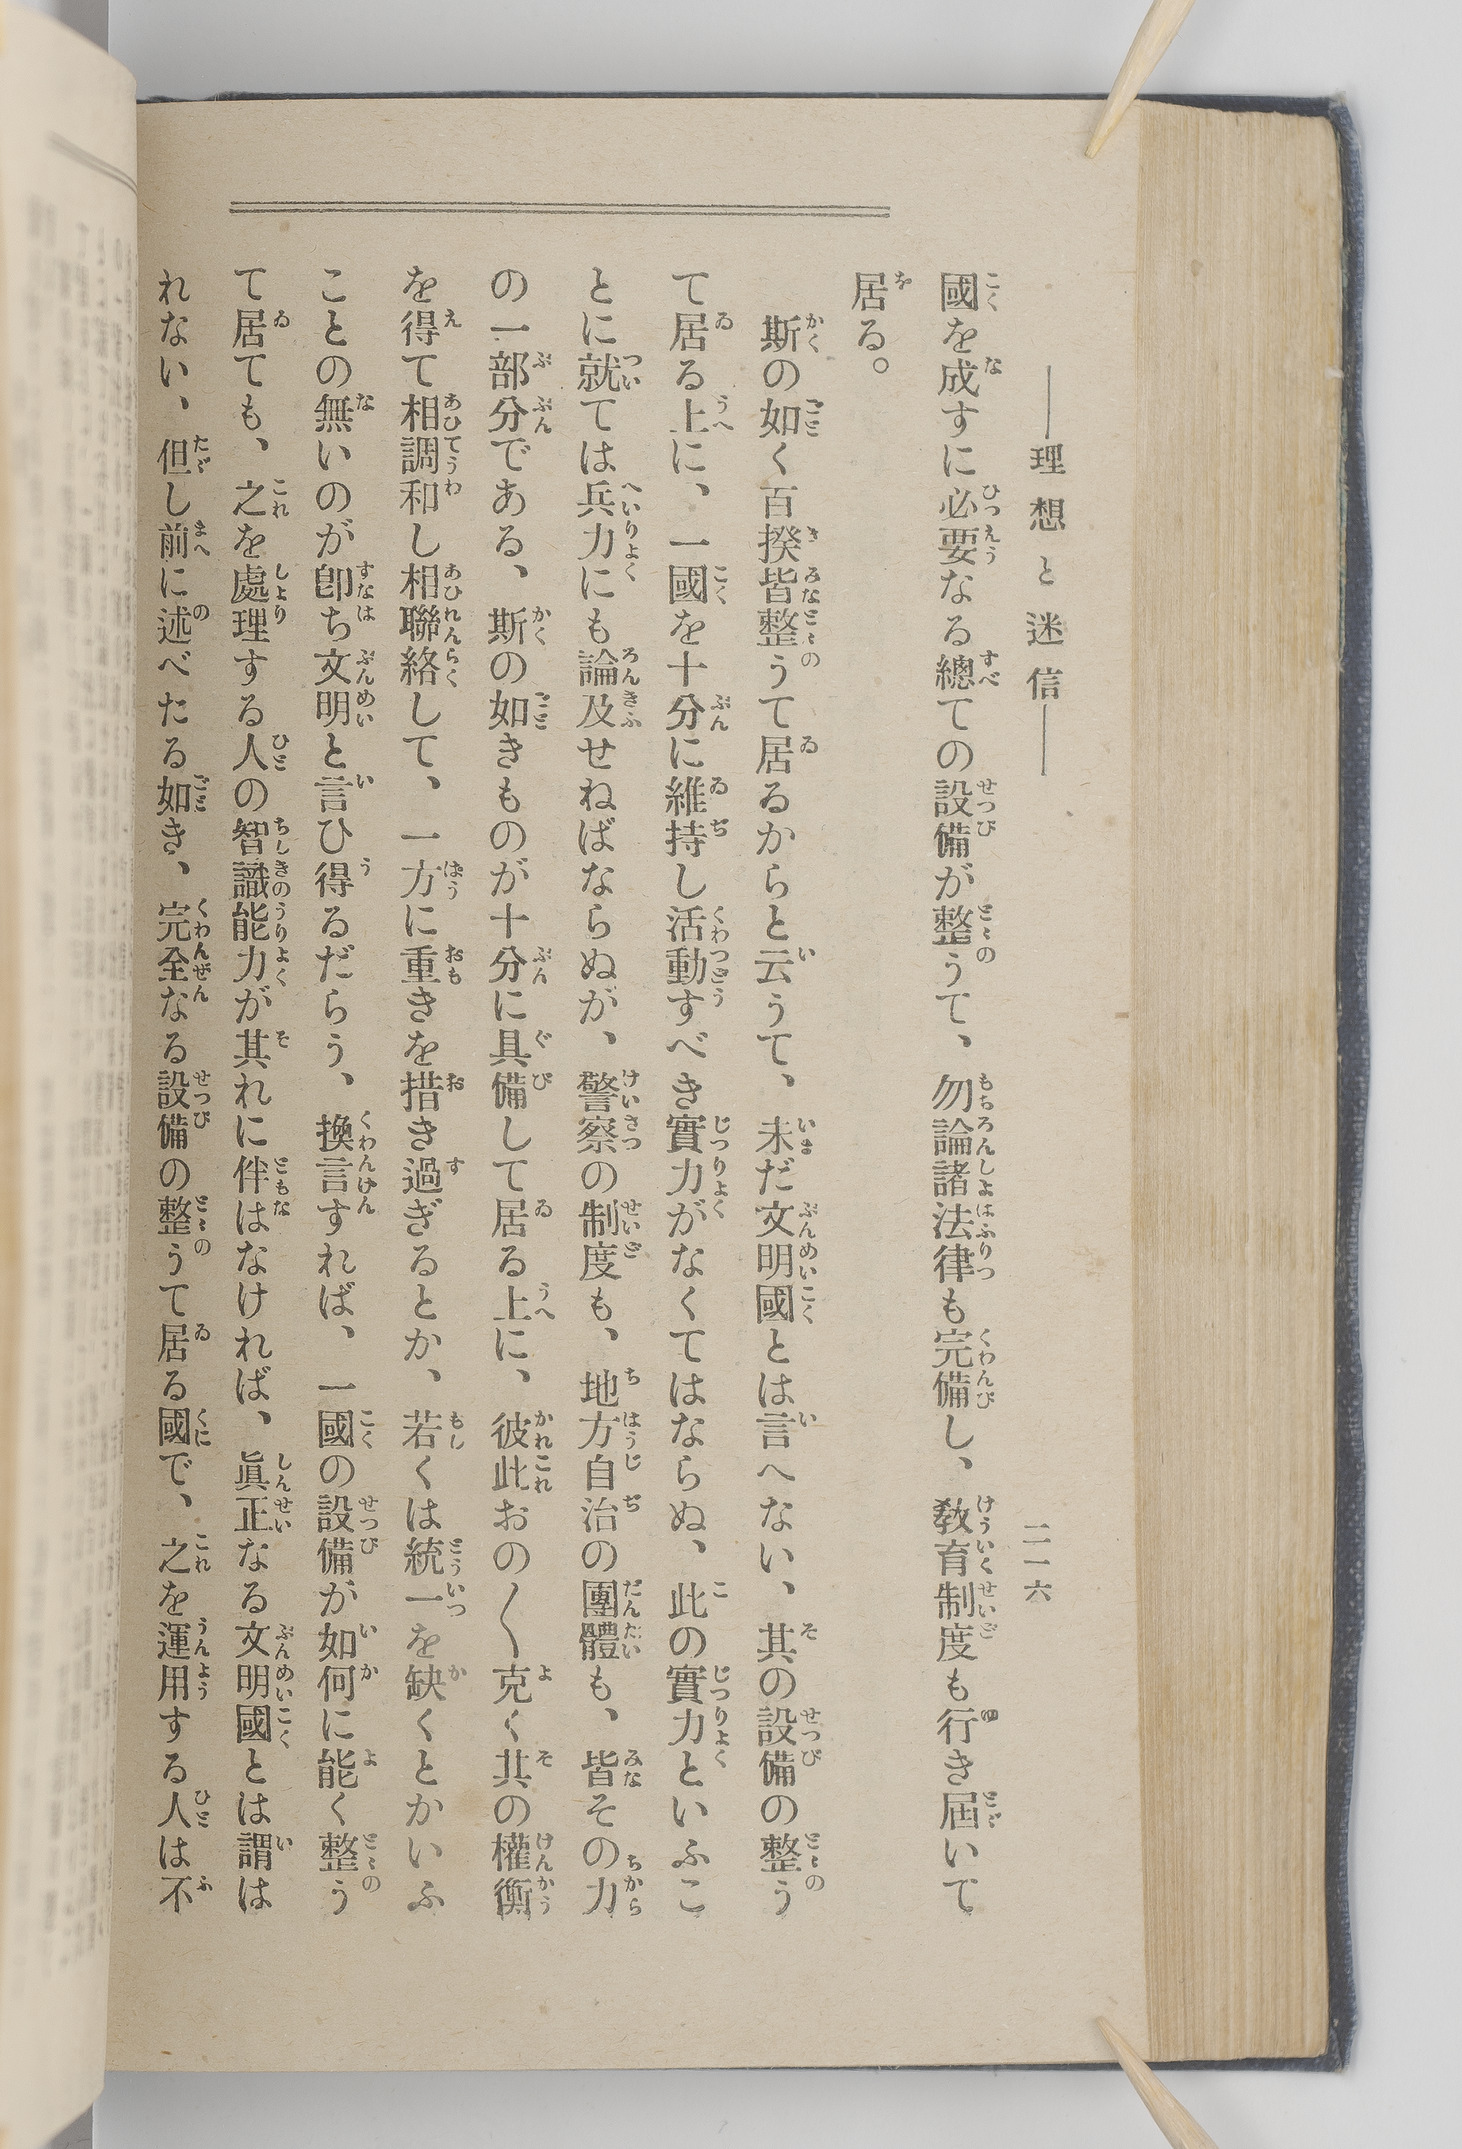 ――理想と迷信――
二一六
國を成すに必要なる總ての設備が整うて、勿論諸法律も完備し、敎育制度も行き屆いて
居る。
斯の如く百揆皆整うて居るからと云うて、未だ文明國とは言へない、其の設備の整う
て居る上に、一國を十分に維持し活動すべき實力がなくてはならぬ、此の實力といふこ
とに就ては兵力にも論及せねばならぬが、警察の制度も、地方自治の團體も、皆その力
の一部分である、斯の如きものが十分に具備して居る上に、彼此おの〱克く其の權衡
を得て相調和し相聯絡して、一方に重きを措き過ぎるとか、若くは統一を缺くとかいふ
ことの無いのが卽ち文明と言ひ得るだらう、換言すれば、一國の設備が如何に能く整う
て居ても、之を處理する人の智識能力が其れに伴はなければ、眞正なる文明國とは謂は
れない、但し前に述べたる如き、完全なる設備の整うて居る國で、之を運用する人は不